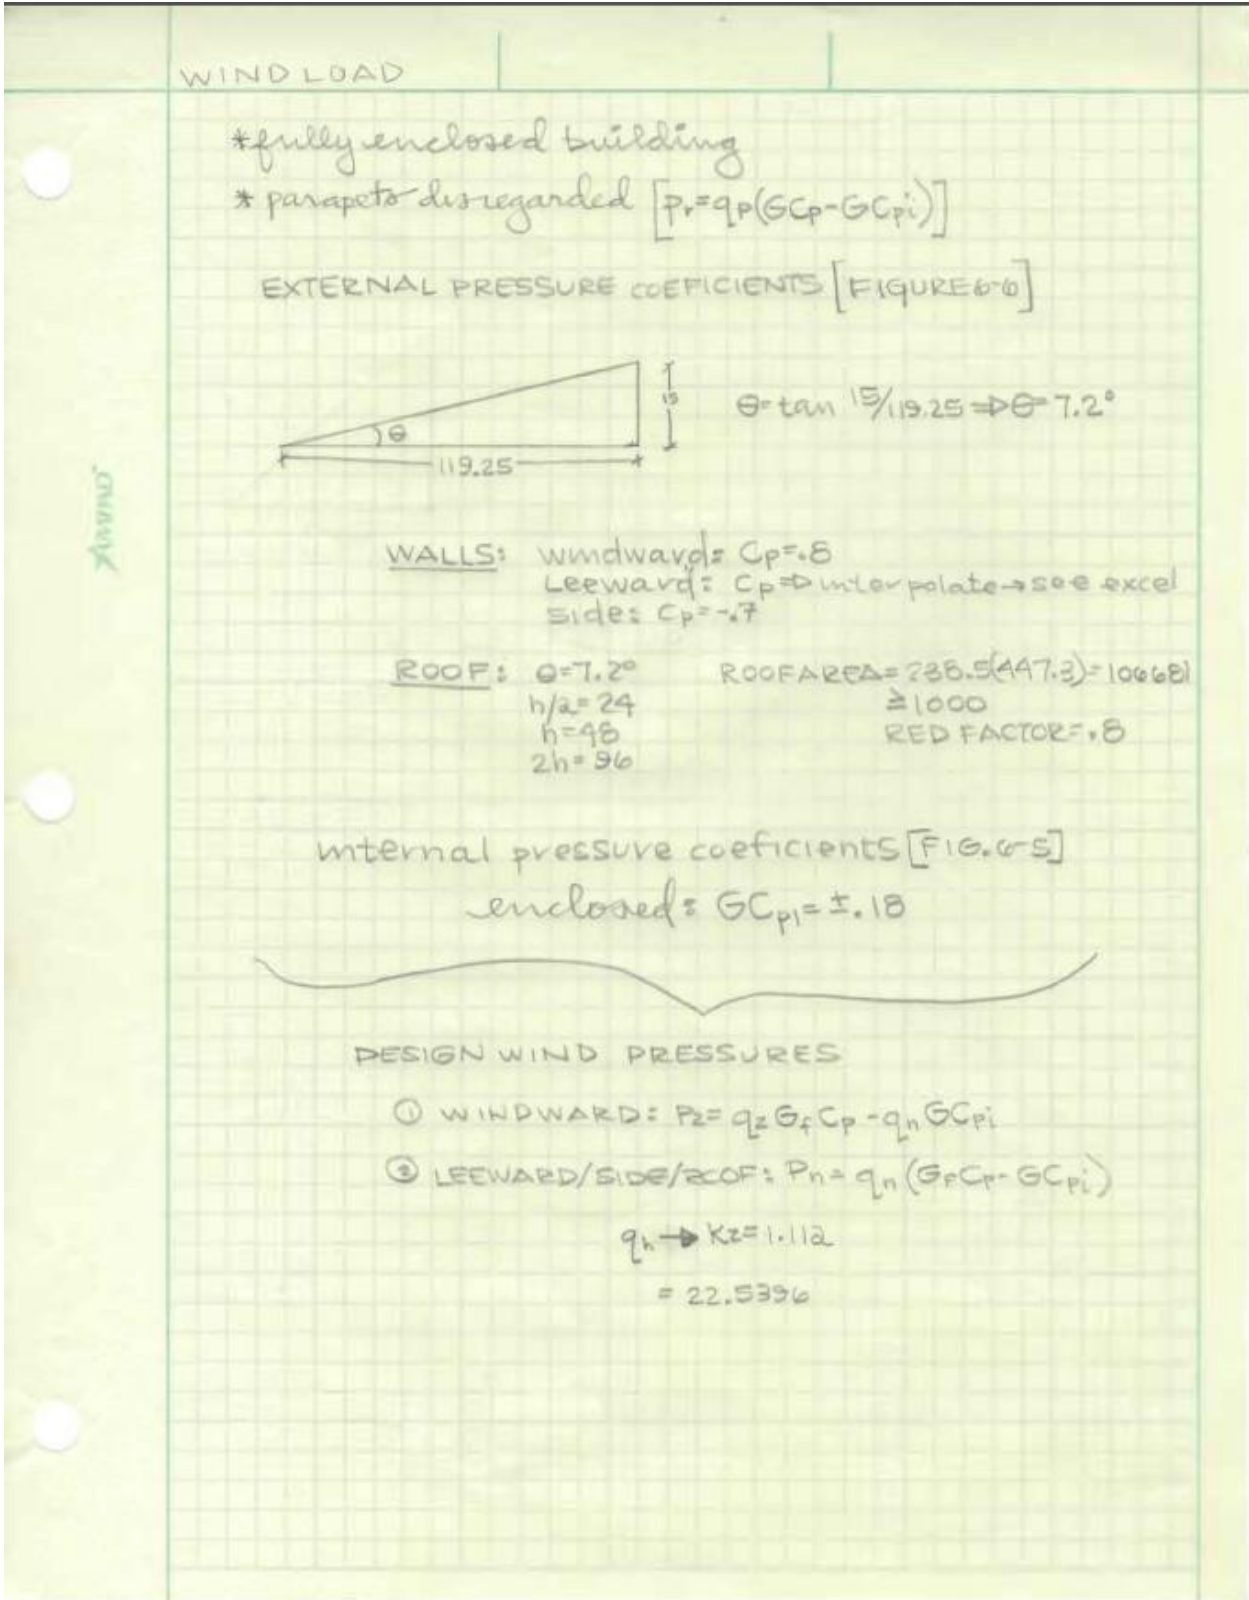 WIND LOAD
*fully enclosed building
* parapets disregarded [Pr=qp(GCp-GCpi)]
EXTERNAL PRESSURE COEFICIENTS [FIGURE 6-6]
θ
15
119.25
θ=tan 15/119.25 ⇒ θ=7.2°
WALLS: windward: Cp=.8
Leeward: Cp⇒interpolate→see excel
side: Cp=-.7
ROOF: θ=7.2° ROOF AREA=238.5(447.3)=106681
h/2=24 ≥1000
h=48 RED FACTOR=.8
2h=96
internal pressure coeficients [FIG. 6-5]
enclosed: GCpi=±.18
DESIGN WIND PRESSURES
① WINDWARD: Pz=qzGfCp-qhGCpi
② LEEWARD/SIDE/ROOF: Ph=qh(GfCp-GCpi)
qh→Kz=1.112
= 22.5396
AMPAD